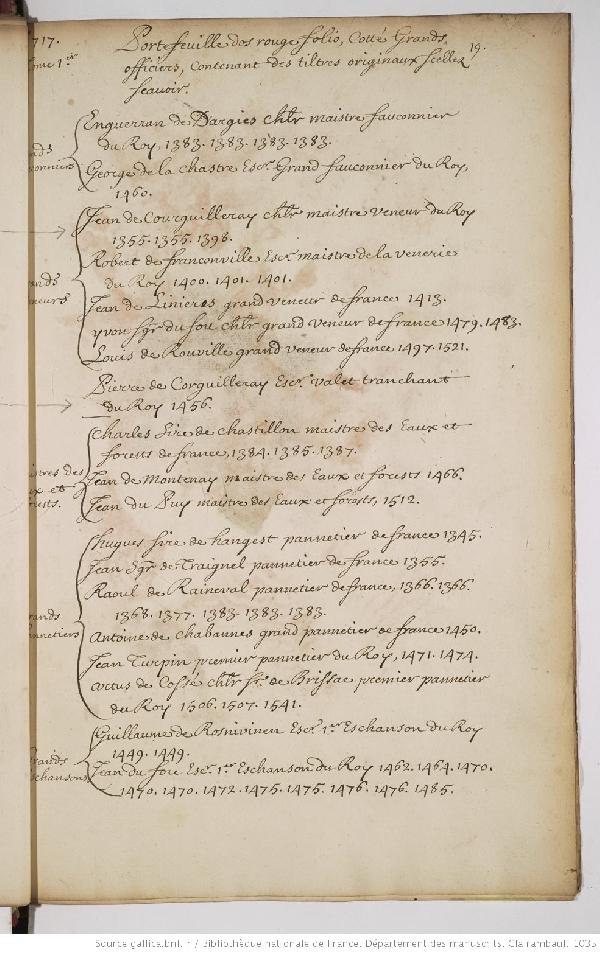 717.
Portefeuille dos rouge folio, Cotté Grands
19.
officiers, Contenant des tiltres originaux scellez
scavoir.
Enguerran de Dargies chlr maistre fauconnier
du Roy, 1383. 1383. 1383. 1383.
George de la Chastre Escr. Grand fauconnier du Roy,
1460.
Jean de Courguilleray chlr maistre veneur du Roy
1355. 1355. 1396.
Robert de franconville Escr. maistre de la venerie
du Roy 1400. 1401. 1401.
Jean de Linieres grand veneur de france 1413.
yvon sgr. du fou chlr grand veneur de france 1479. 1483.
Louis de Rouville grand veneur de france 1497. 1521.
Pierre de Corguilleray Escr. valet tranchant
du Roy 1456.
Charles sire de chastillon maistre des Eaux et
forests de france, 1384. 1385. 1387.
Jean de Montenay maistre des Eaux et forests 1466.
Jean du Puy maistre des Eaux et forests, 1512.
hugues sire de hangest pannetier de france 1345.
Jean Sgr. de Traignel pannetier de france 1355.
Raoul de Raineval pannetier de france, 1366. 1366.
1368. 1377. 1383. 1383. 1383.
Antoine de Chabannes grand pannetier de france 1450.
Jean Turpin premier pannetier du Roy, 1471. 1474.
Artus de Cossé chlr sr. de Brissac premier pannetier
du Roy 1506. 1507. 1541.
Guillaume de Rosnivinen Escr. 1er Eschanson du Roy
1449. 1449.
Jean du fou Escr. 1er Eschanson du Roy 1462. 1464. 1470.
1470. 1470. 1472. 1475. 1475. 1476. 1476. 1485.
Source gallica.bnf.fr / Bibliothèque nationale de France. Département des manuscrits. Clairambault 1035